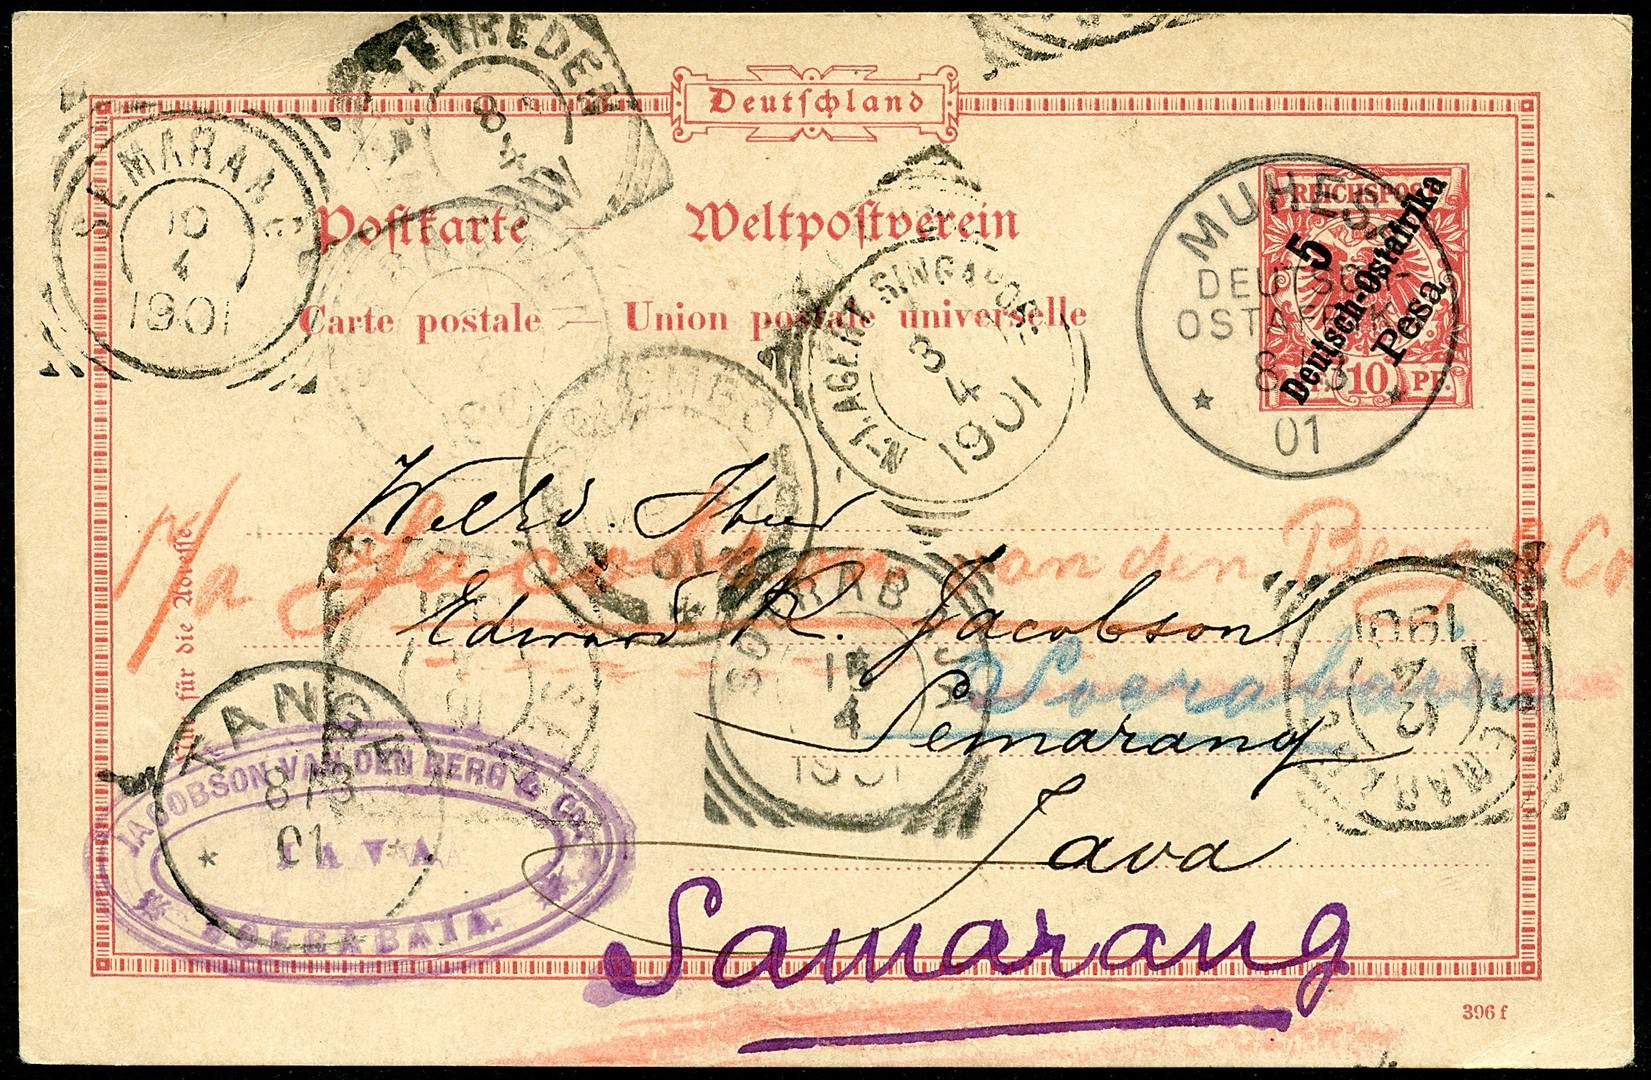 Deutschland
WELTEVREDEN
8
SEMARANG
10
4
1901
Postkarte — Weltpostverein
Carte postale — Union postale universelle
Nᵒ. 1. AGENT SINGAPORE
3
4
1901
MUHESA
DEUTSCH-
OSTAFRIKA
8/3
01
REICHSPOST
5
Deutsch-Ostafrika
Pesa
10 PF.
COLOMBO
01
Edward R. Jacobson
p/a Jacobson van den Berg & Co
Soerabaia
Semarang
Java
Samarang
Nur für die Adresse
SOERABAJA
4
1901
SEMARANG
12
4
1901
TANGA
8/3
01
JACOBSON VAN DEN BERG & Co.
JAVA
SOERABAIA.
396 f